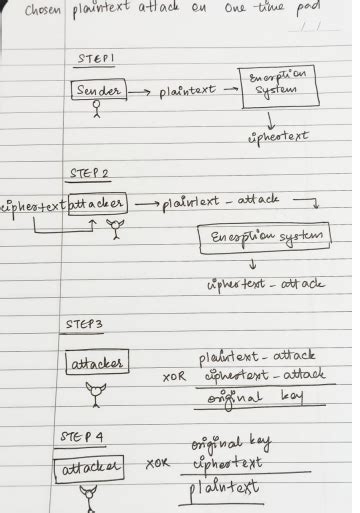 Chosen plaintext attack on One-time pad
STEP 1
Sender → plaintext → Encryption system
ciphertext
STEP 2
ciphertext attacker → plaintext-attack
Encryption system
ciphertext-attack
STEP 3
attacker
plaintext-attack
XOR ciphertext-attack
original key
STEP 4
original key
attacker XOR ciphertext
plaintext